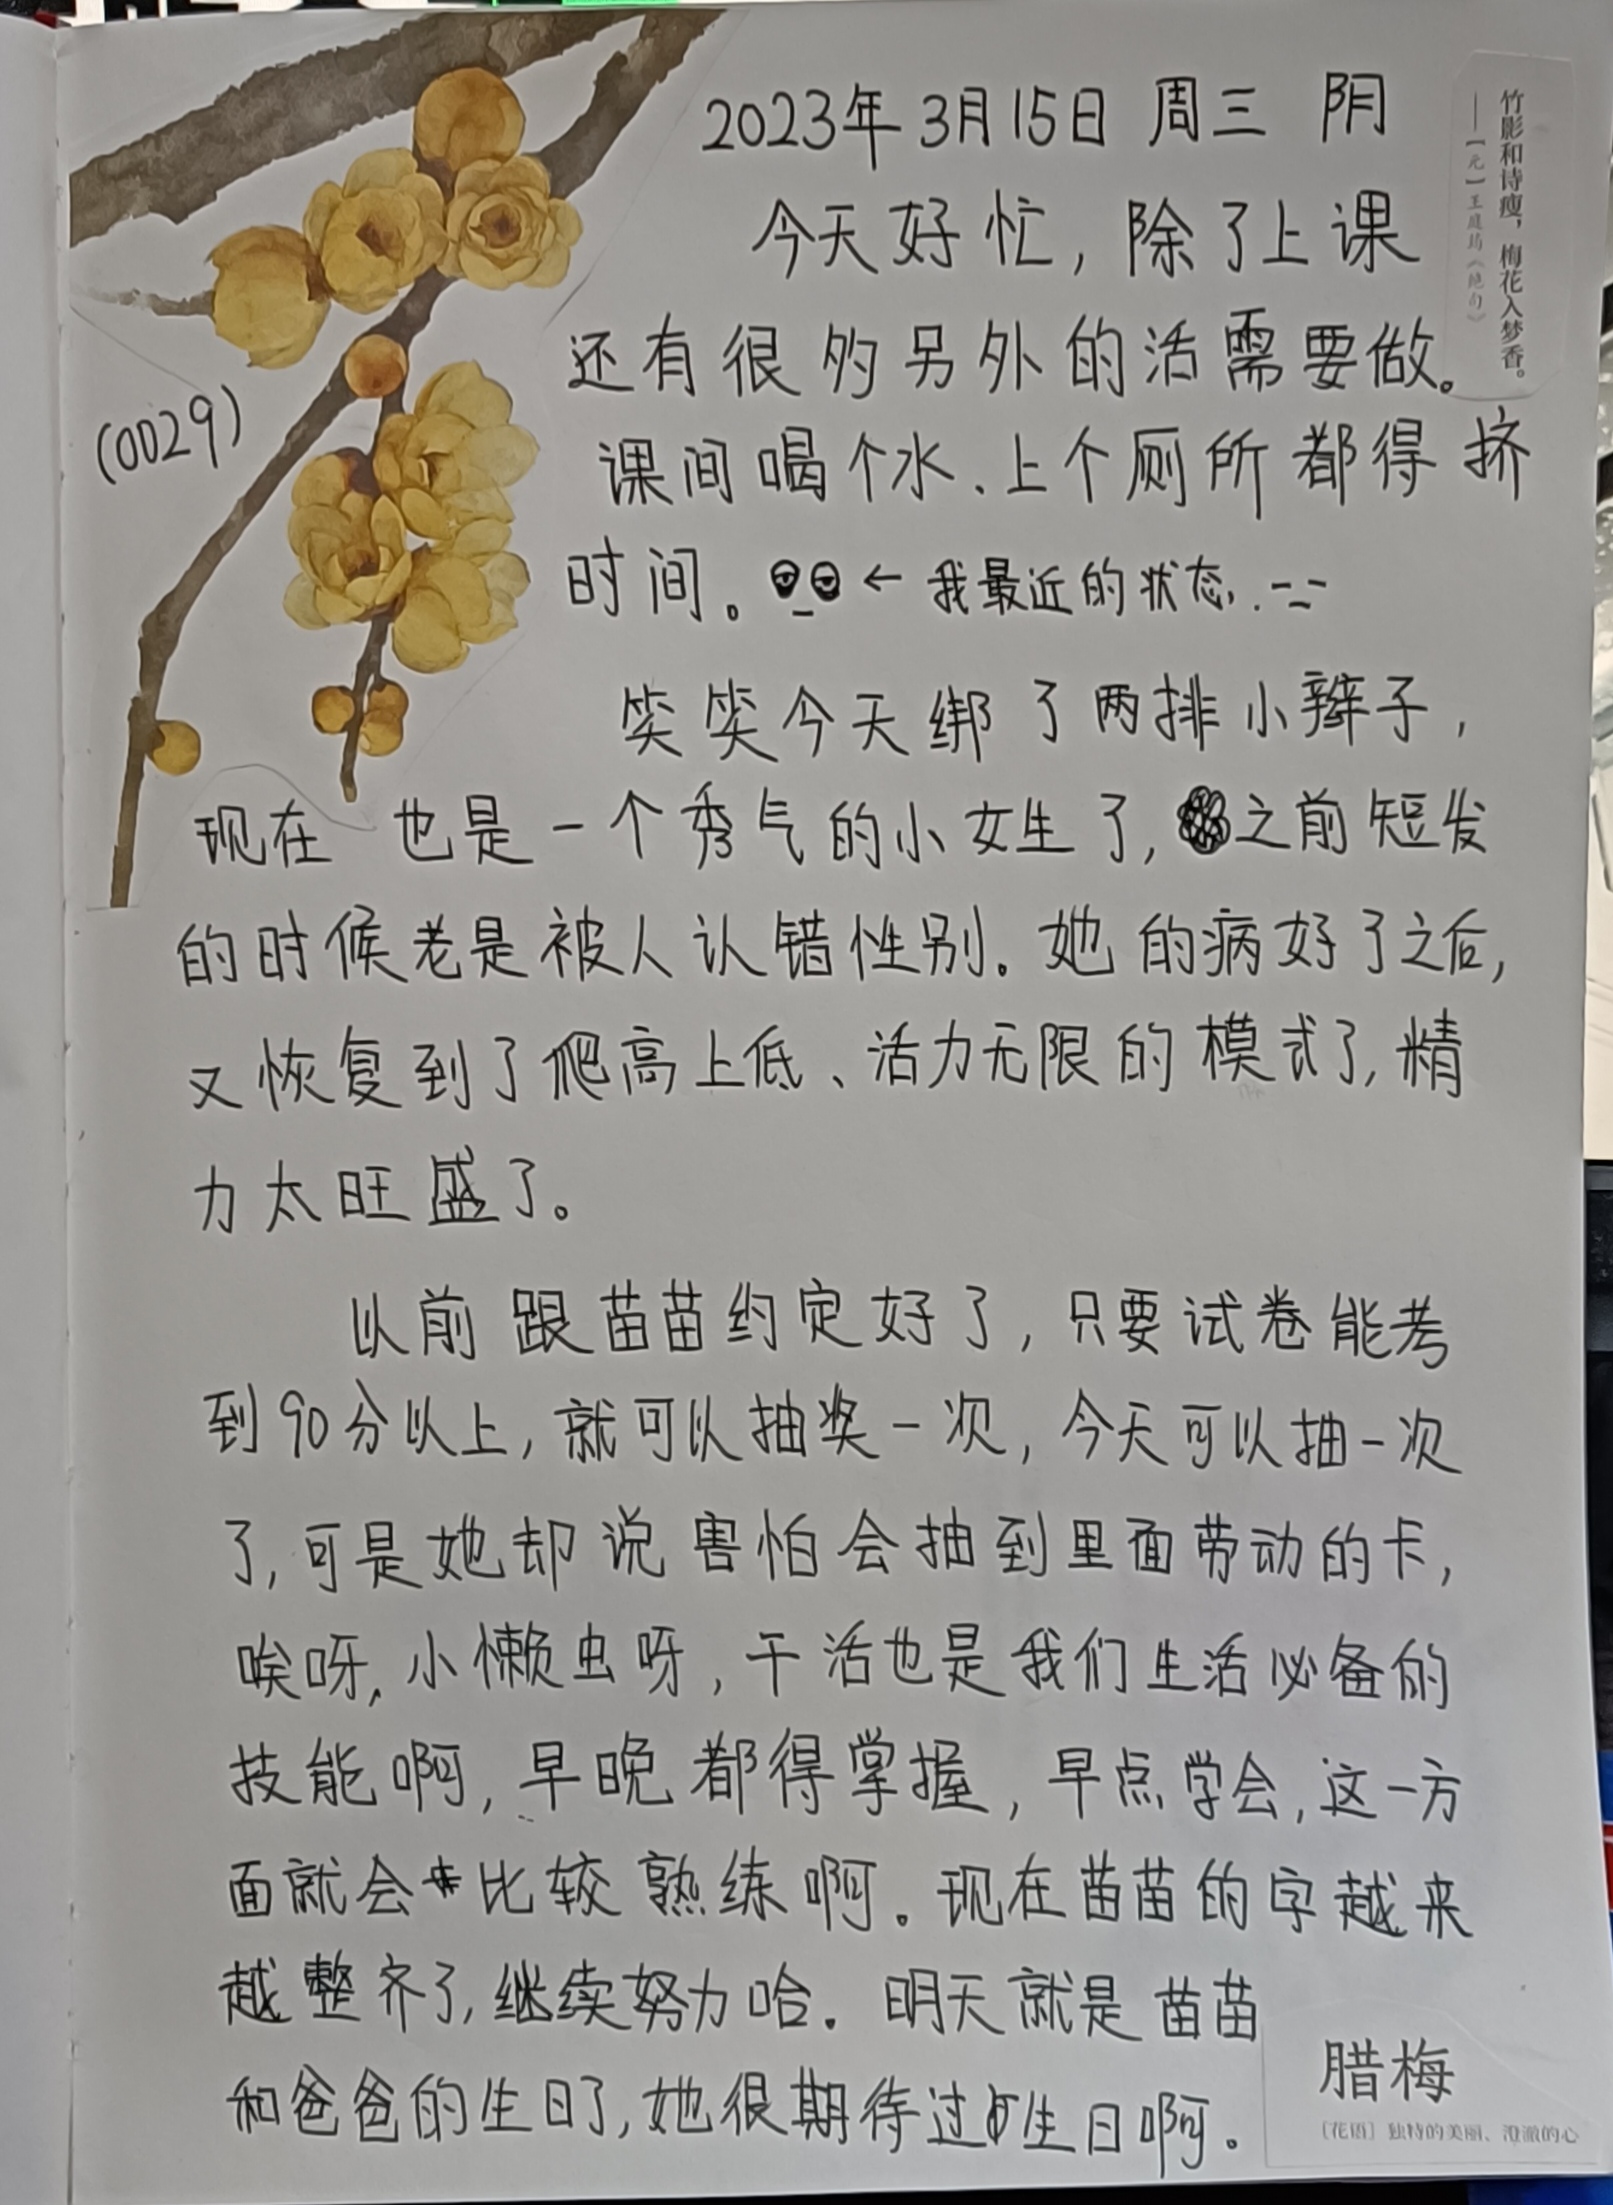 2023年3月15日 周三 阴
竹影和诗瘦，梅花入梦香。
——【元】王庭筠《绝句》
今天好忙，除了上课
还有很多另外的活需要做。
(0029)
课间喝个水、上个厕所都得挤
时间。 ← 我最近的状态.
笑笑今天绑了两排小辫子，
现在 也是一个秀气的小女生了，之前短发
的时候老是被人认错性别。她的病好了之后，
又恢复到了爬高上低、活力无限的模式了，精
力太旺盛了。
以前跟苗苗约定好了，只要试卷能考
到90分以上，就可以抽奖一次，今天可以抽一次
了，可是她却说害怕会抽到里面劳动的卡，
唉呀，小懒虫呀，干活也是我们生活必备的
技能啊，早晚都得掌握，早点学会，这一方
面就会比较熟练啊。现在苗苗的字越来
越整齐了，继续努力哈。明天就是苗苗
和爸爸的生日了，她很期待过生日啊。
腊梅
〔花语〕独特的美丽、澄澈的心